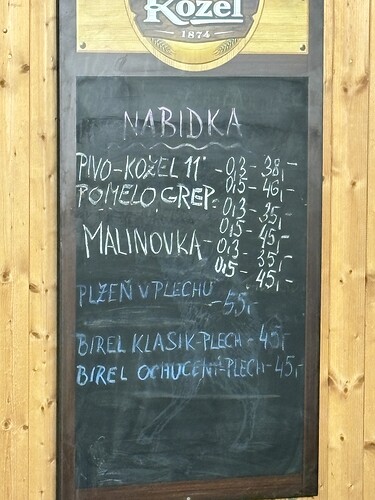 Kozel
1874
NABIDKA
PIVO-KOZEL 11° - 0,3 - 38,-
0,5 - 46,-
POMELO GREP. 0,3 - 35,-
0,5 - 45,-
MALINOVKA - 0,3 - 35,-
0,5 - 45,-
PLZEŇ V PLECHU - 55,-
BIREL KLASIK-PLECH - 45,-
BIREL OCHUCENÝ-PLECH - 45,-